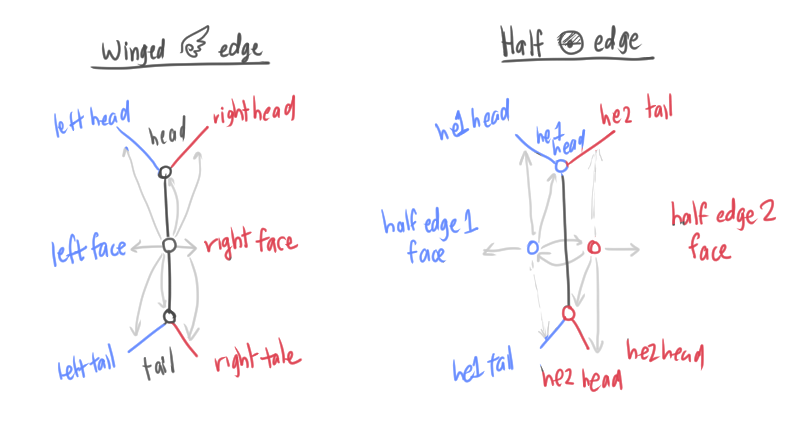 Winged edge
left head
head
right head
left face
right face
left tail
tail
right tale
Half edge
he1 head
he1
head
he2 tail
half edge 1
face
half edge 2
face
he1 tail
he2 head
he2 head